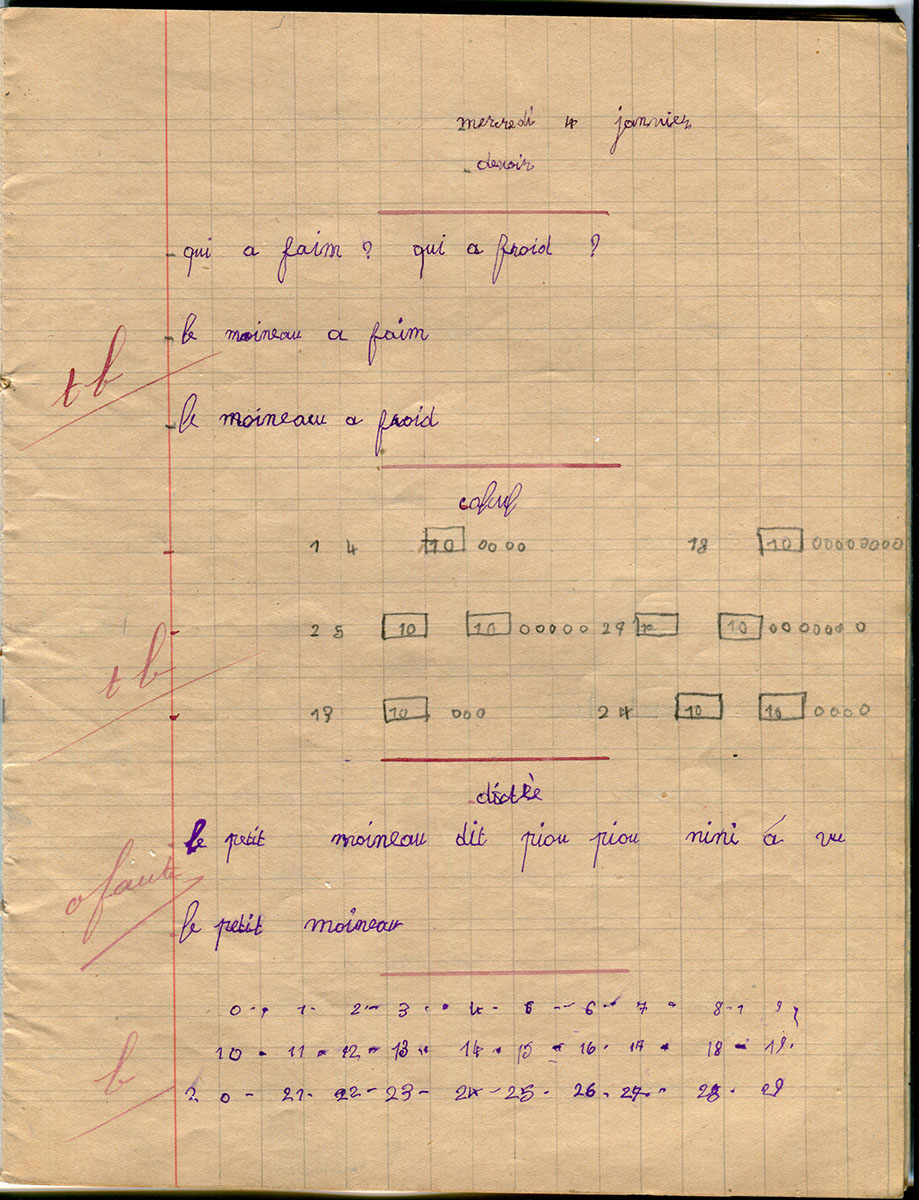 mercredi 4 janvier
devoir
qui a faim ? qui a froid ?
le moineau a faim
tb
le moineau a froid
calcul
1 4 10 0000 18 10 00000000
2 5 10 10 00000 27 10 10 0000000
tb
13 10 000 24 10 10 0000
dictée
le petit moineau dit piou piou nini á vu
0 faute
le petit moineau
0 - 1 - 2 - 3 - 4 - 5 - 6 - 7 - 8 - 9
10 - 11 - 12 - 13 - 14 - 15 - 16 - 17 - 18 - 19.
b
2 0 - 21 - 22 - 23 - 24 - 25 - 26 - 27 - 28 - 29